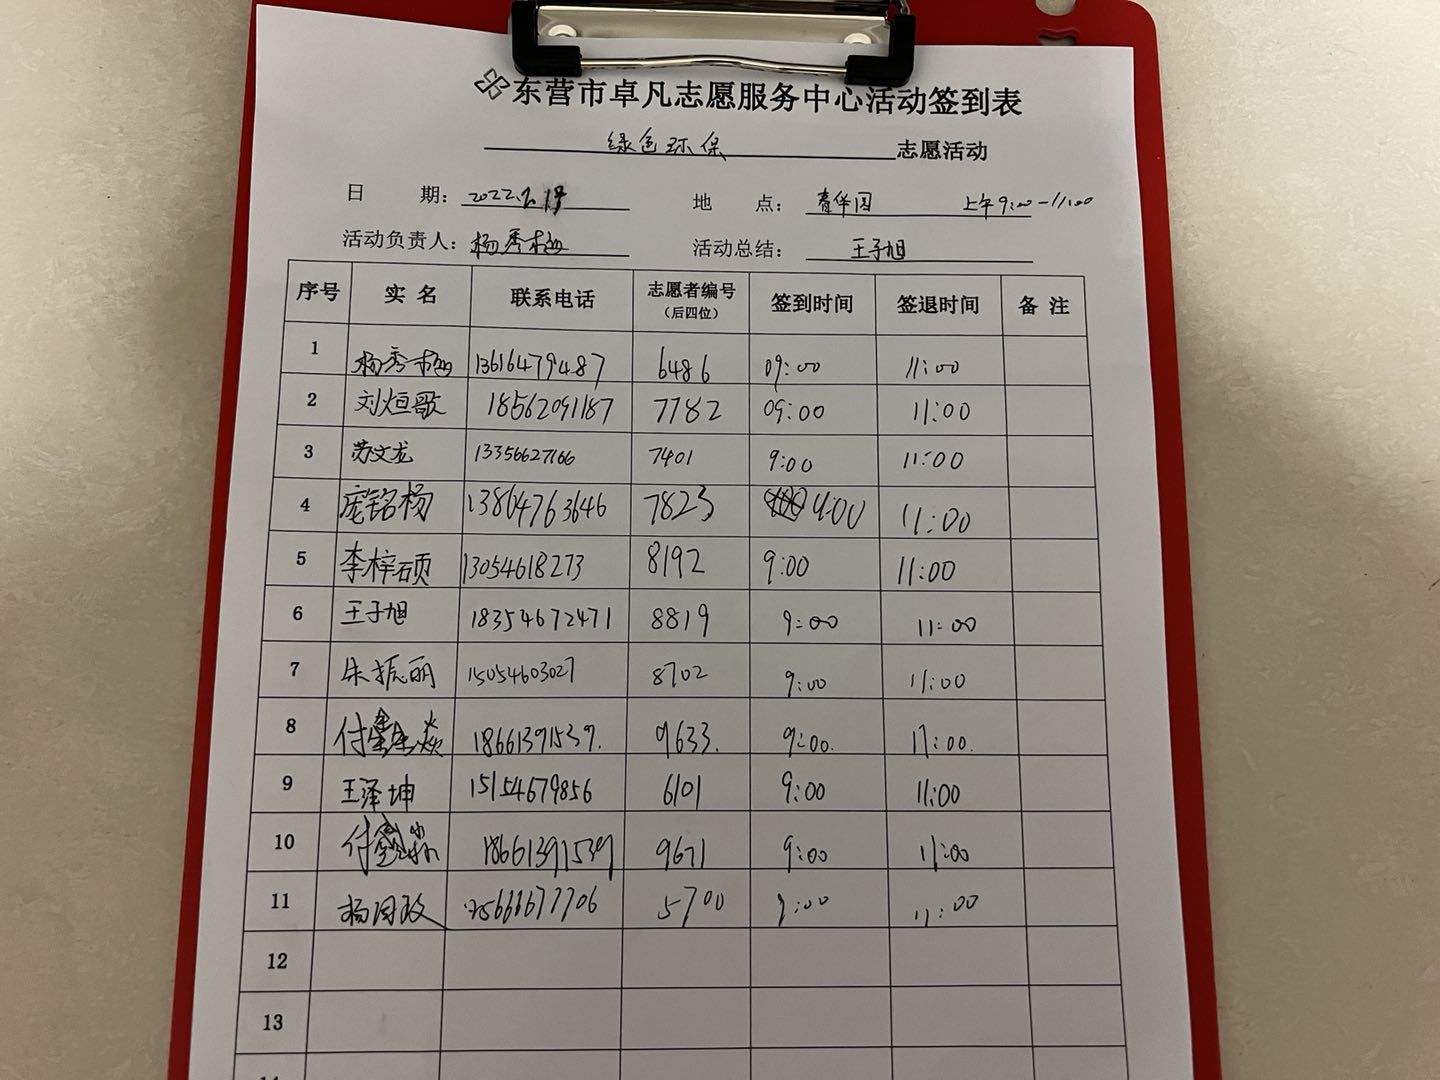 东营市卓凡志愿服务中心活动签到表
绿色环保 志愿活动
日 期：2022.2.19 地 点：青华园 上午9:00-11:00
活动负责人：杨秀梅 活动总结：王子旭
序号 实名 联系电话 志愿者编号（后四位） 签到时间 签退时间 备注
1 杨秀梅 13616479487 6486 09:00 11:00
2 刘烜歌 18562091187 7782 09:00 11:00
3 苏文龙 13356627166 7401 9:00 11:00
4 庞铭杨 13864763646 7823 9:00 11:00
5 李梓硕 13054618273 8192 9:00 11:00
6 王子旭 18354672471 8819 9:00 11:00
7 朱振丽 15054603027 8702 9:00 11:00
8 付 焱 18661391539. 9633. 9:00. 11:00.
9 王泽坤 15154679856 6101 9:00 11:00
10 付 18661391539 9671 9:00 11:00
11 杨 5700 9:00 11:00
12
13